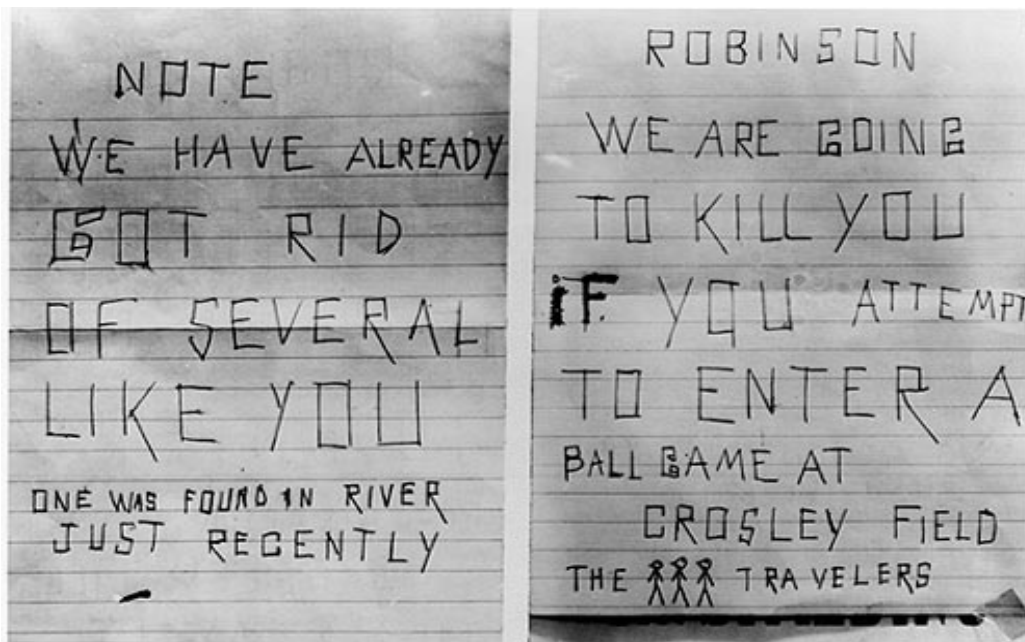 NOTE
WE HAVE ALREADY
GOT RID
OF SEVERAL
LIKE YOU
ONE WAS FOUND IN RIVER
JUST RECENTLY
ROBINSON
WE ARE GOING
TO KILL YOU
IF. YOU ATTEMPT
TO ENTER A
BALL GAME AT
CROSLEY FIELD
THE TRAVELERS